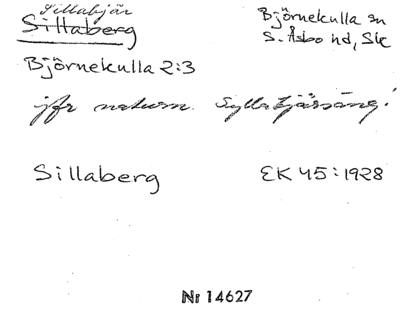 Sillabjär
Sillaberg
Björnekulla sn
S. Åsbo hd, Sk
Björnekulla 2:3
jfr naturn. Syllabjärsäng!
Sillaberg
EK 45:1928
Nr 14627